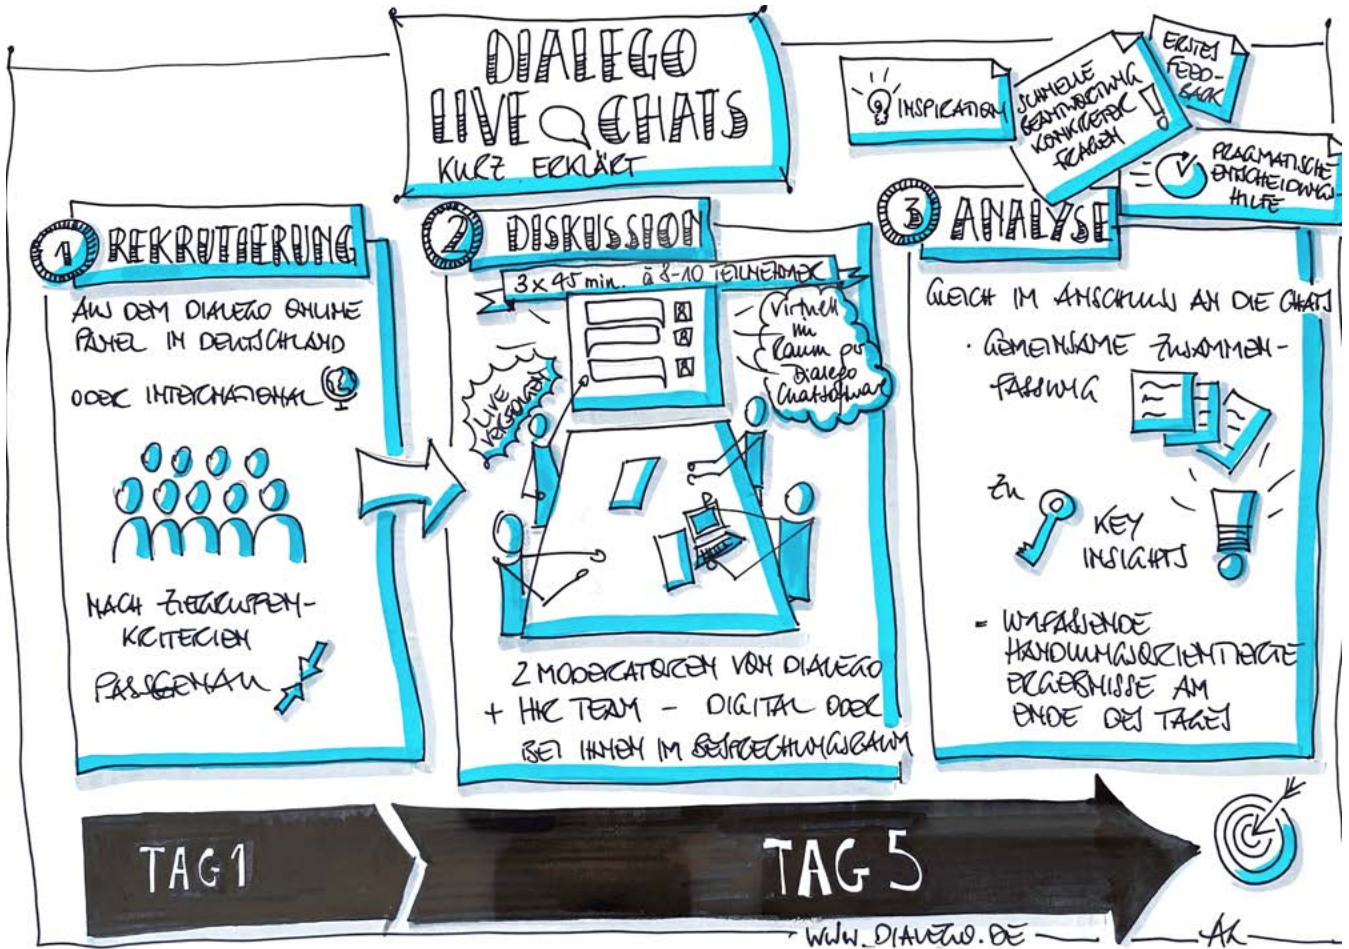 DIALEGO
LIVE CHATS
KURZ ERKLÄRT
INSPIRATION
SCHNELLE
BEANTWORTUNG
KONKRETER
FRAGEN
ERSTES
FEED-
BACK
PRAGMATISCHE
ENTSCHEIDUNGS-
HILFE
1 REKRUTIERUNG
AUS DEM DIALEGO ONLINE
PANEL IN DEUTSCHLAND
ODER INTERNATIONAL
NACH ZIELGRUPPEN-
KRITERIEN
PASSGENAU
2 DISKUSSION
3 x 45 min. à 8-10 TEILNEHMER
LIVE
VERFOLGEN
Virtuell
im
Raum per
Dialego
Chatsoftware
2 MODERATOREN VON DIALEGO
+ IHR TEAM - DIGITAL ODER
BEI IHNEN IM BESPRECHUNGSRAUM
3 ANALYSE
GLEICH IM ANSCHLUSS AN DIE CHATS
· GEMEINSAME ZUSAMMEN-
FASSUNG
Zu
KEY
INSIGHTS
= UMFASSENDE
HANDLUNGSORIENTIERTE
ERGEBNISSE AM
ENDE DES TAGES
TAG 1
TAG 5
WWW.DIALEGO.DE
AK